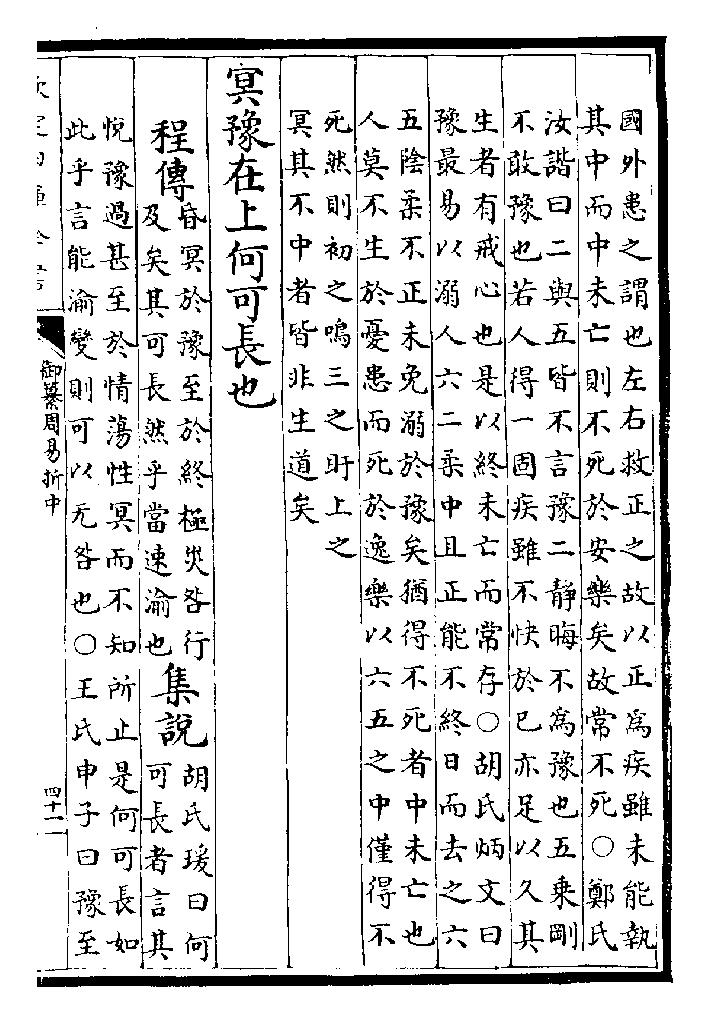 國外患之謂也左右救正之故以正為疾雖未能執
其中而中未亡則不死於安樂矣故常不死○鄭氏
汝諧曰二與五皆不言豫二靜晦不為豫也五乗剛
不敢豫也若人得一固疾雖不快於已亦足以久其
生者有戒心也是以終未亡而常存○胡氏炳文曰
豫最易以溺人六二柔中且正能不終日而去之六
五陰柔不正未免溺於豫矣猶得不死者中未亡也
人莫不生於憂患而死於逸樂以六五之中僅得不
死然則初之鳴三之盱上之
冥其不中者皆非生道矣
冥豫在上何可長也
程傳
昏冥於豫至於終極災咎行
及矣其可長然乎當速渝也
集說
胡氏瑗曰何
可長者言其
恱豫過甚至於情蕩性冥而不知所止是何可長如
此乎言能渝變則可以无咎也○王氏申子曰豫至
御纂周易折中
四十二